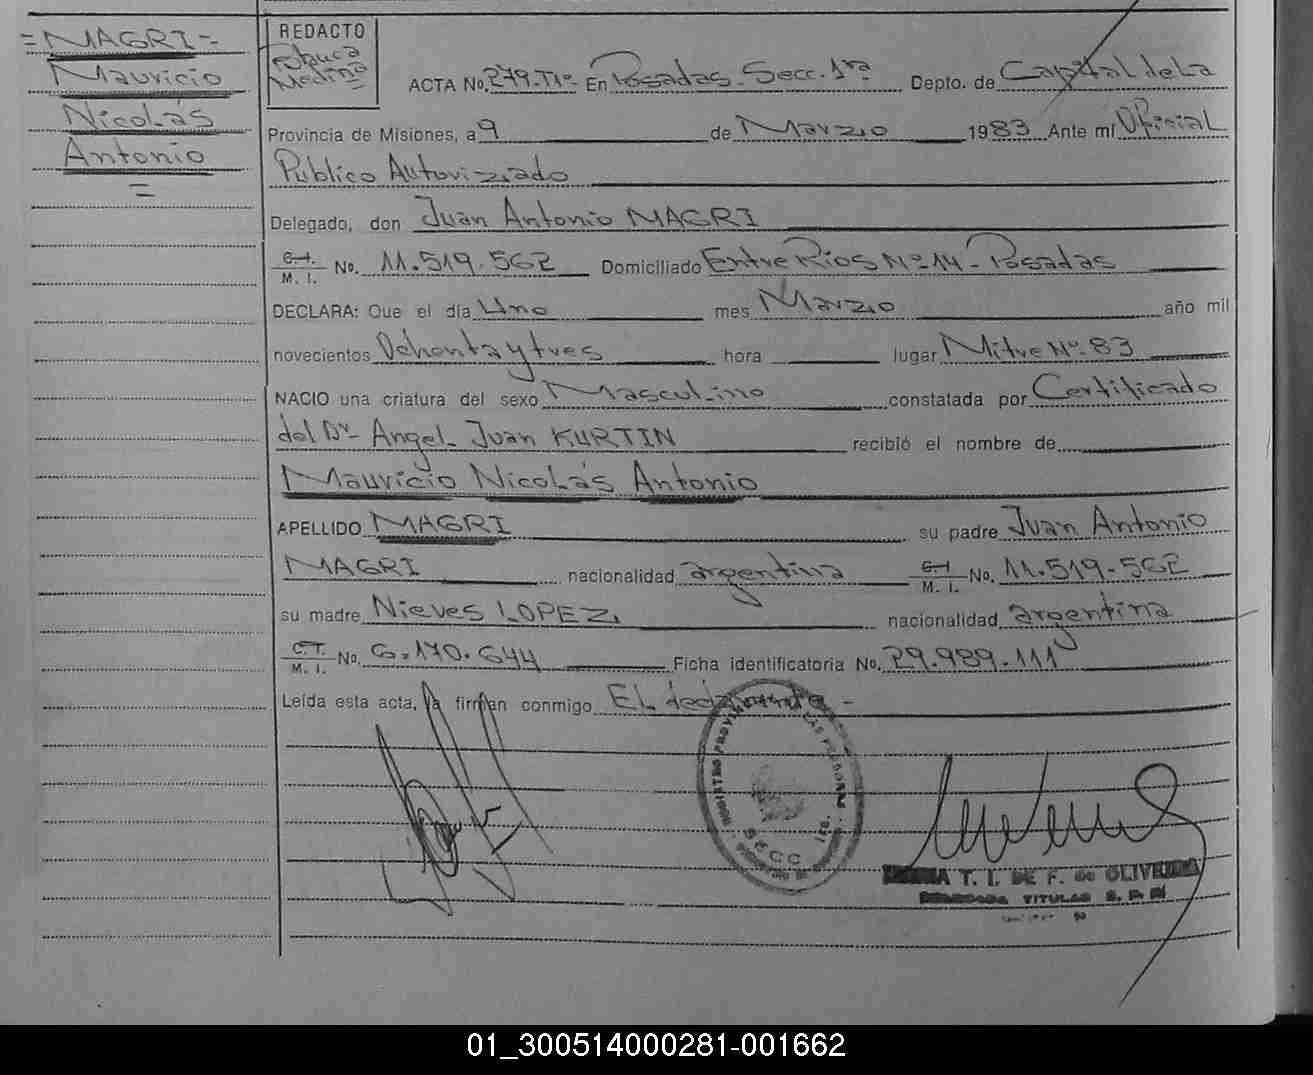 =MAGRI=
Mauricio
Nicolás
Antonio
=
REDACTO
Medina
ACTA No. 279.Tº1º En Posadas. Secc. 1ra Depto. de Capital de La
Provincia de Misiones, a 9 de Marzo 1983 Ante mí Oficial
Publico Autorizado
Delegado, don Juan Antonio MAGRI
C. I.
M. I. No. 11.519.562 Domiciliado Entre Rios Nº 14 - Posadas
DECLARA: Que el día Uno mes Marzo año mil
novecientos Ochenta y tres hora lugar Mitre Nº. 83
NACIO una criatura del sexo Masculino constatada por Certificado
del Dr. Angel Juan KURTIN recibió el nombre de
Mauricio Nicolás Antonio
APELLIDO MAGRI su padre Juan Antonio
MAGRI nacionalidad argentina C. I.
M. I. No. 11.519-562
su madre Nieves LOPEZ nacionalidad argentina
C. I.
M. I. No. 6.170.644 Ficha identificatoria No. 29.989.111
Leída esta acta, la firman conmigo El declarante -
REGISTRO PROVINCIAL DE LAS PERSONAS
SECC 1ra.
T. I. DE F. de OLIVEIRA
TITULAR
01_300514000281-001662